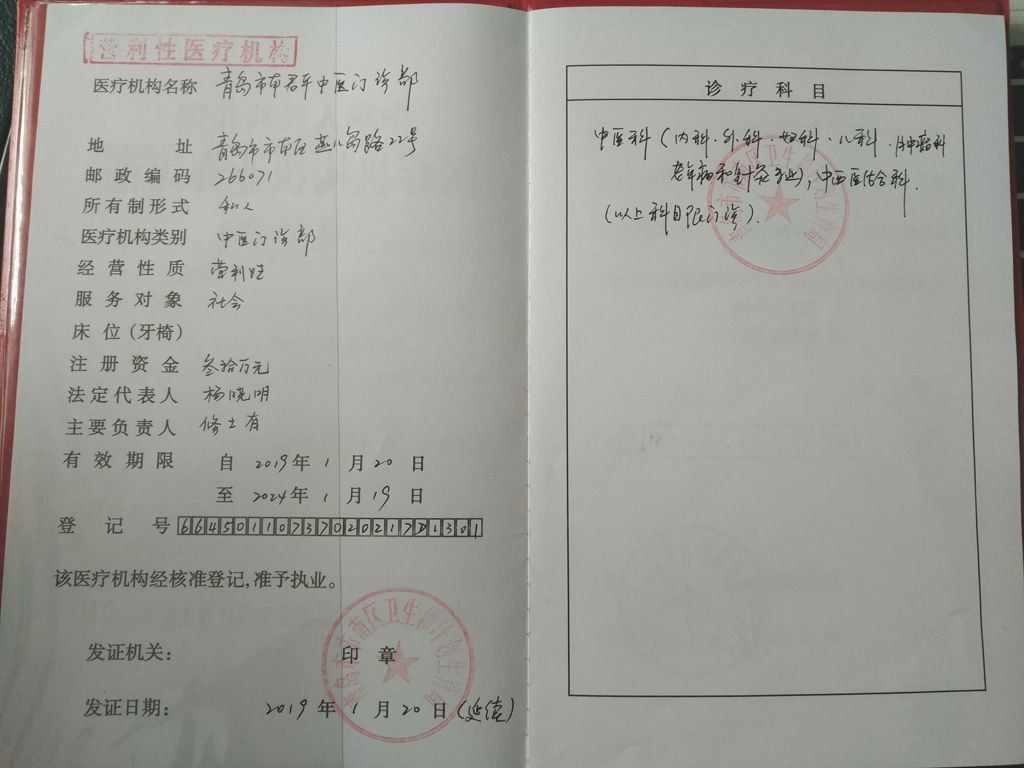 营利性医疗机构
医疗机构名称 青岛市南君平中医门诊部
地 址 青岛市市南区燕儿岛路22号
邮政编码 266071
所有制形式 私人
医疗机构类别 中医门诊部
经营性质 营利性
服务对象 社会
床位(牙椅)
注册资金 叁拾万元
法定代表人 杨晓明
主要负责人 修士有
有效期限 自 2019年 1 月 20 日
至 2024年 1 月 19 日
登记号
该医疗机构经核准登记,准予执业。
发证机关: 印 章
发证日期: 2019 年 1 月 20 日(延续)
诊疗科目
中医科(内科·外科·妇科·儿科·肿瘤科
老年病和针灸专业),中西医结合科.
(以上科目限门诊).